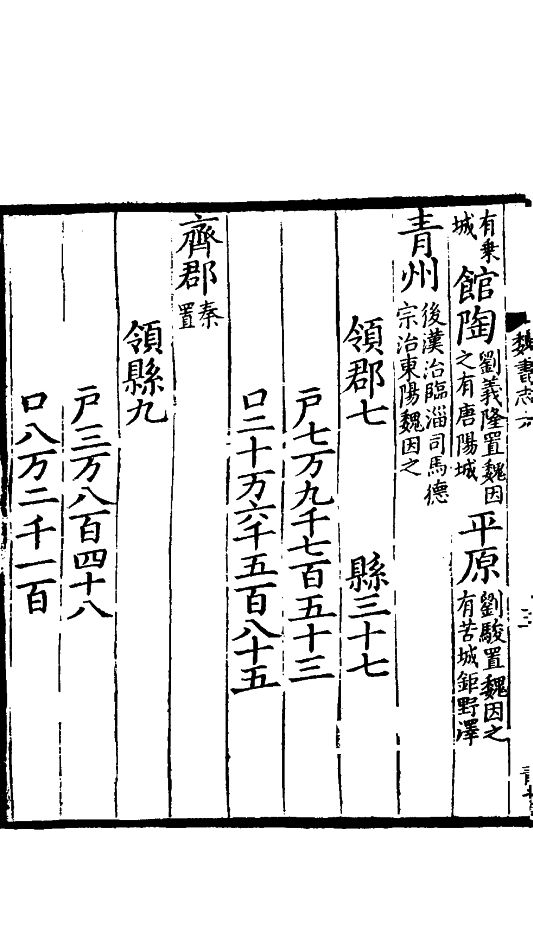 魏書志六
有乗城館陶劉義隆置魏因之有唐陽城平原劉駿置魏因之有苦城鉅野澤
青州後漢治臨淄司馬德宗治東陽魏因之
領郡七　縣三十七
戸七万九千七百五十三
口二十万六千五百八十五
齊郡秦置
領縣九
戸三万八百四十八
口八万二千一百